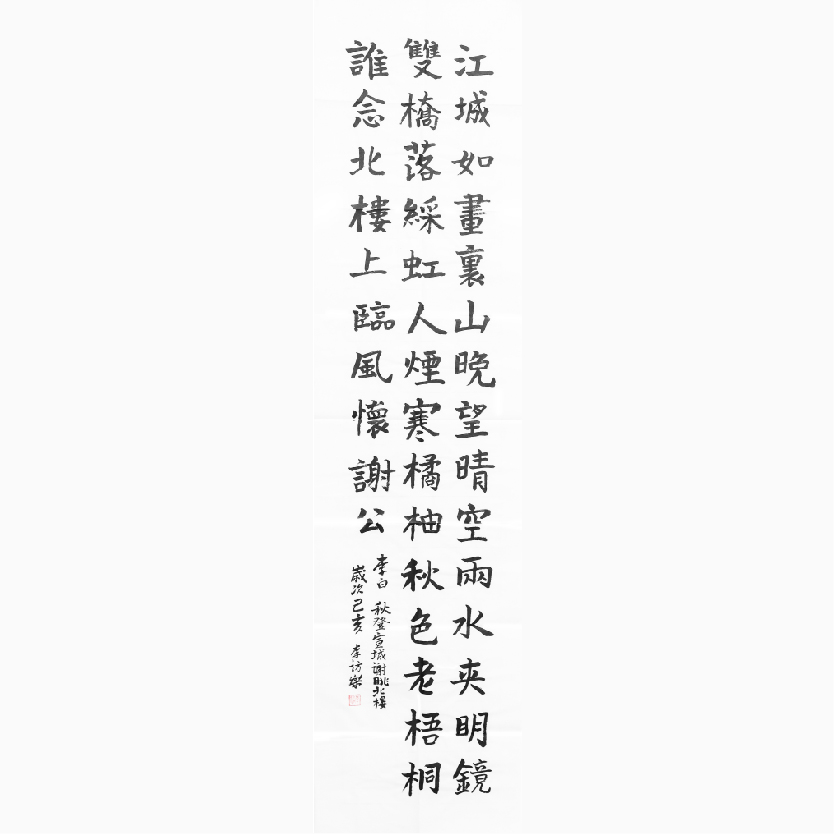 江城如畫裏山晚望晴空雨水夾明鏡
雙橋落綵虹人煙寒橘柚秋色老梧桐
誰念北樓上臨風懷謝公
李白 秋登宣城謝朓北樓
歲次己亥 李訪樂